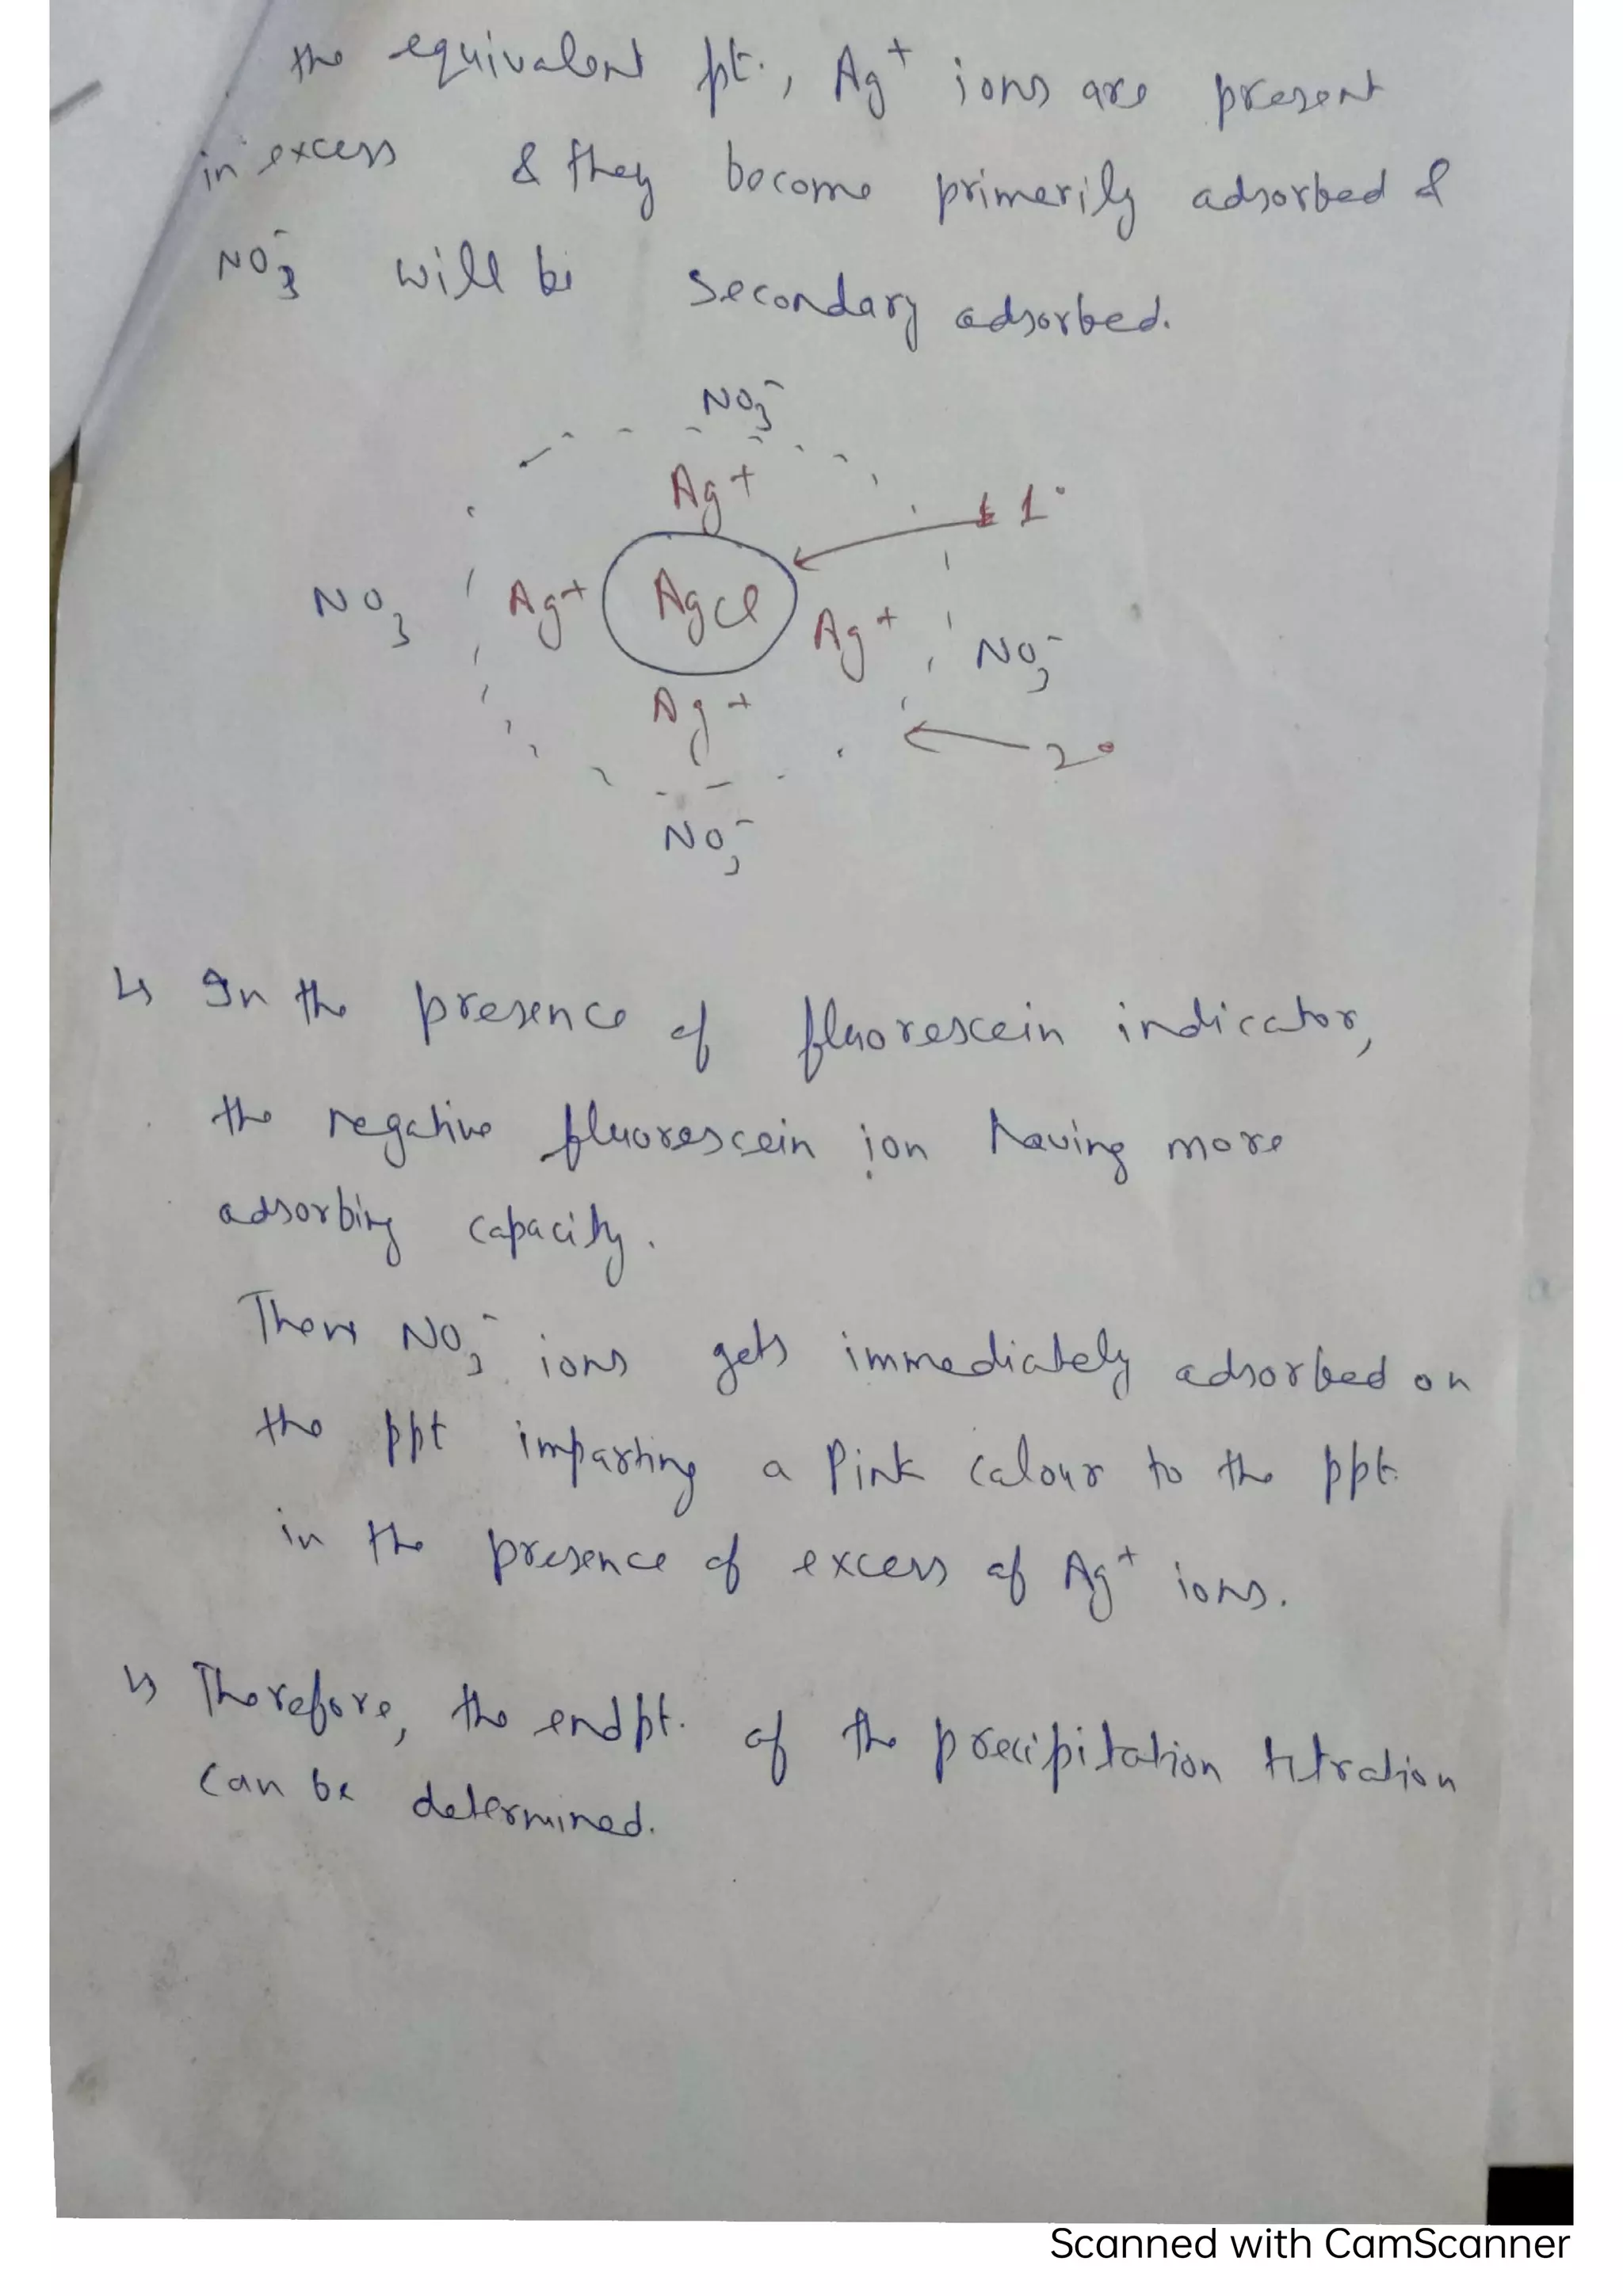 the equivalent pt., Ag⁺ ions are present
in excess & they become primerily adsorbed &
NO₃⁻ will be secondary adsorbed.
NO₃⁻
Ag⁺
1°
NO₃ Ag⁺ AgCl Ag⁺ NO₃⁻
Ag⁺
2°
NO₃⁻
↳ In the presence of fluorescein indicator,
the negative fluorescein ion having more
adsorbing capacity.
Then NO₃⁻ ions gets immediately adsorbed on
the ppt imparting a Pink colour to the ppt.
in the presence of excess of Ag⁺ ions.
↳ Therefore, the endpt. of the precipitation titration
can be determined.
Scanned with CamScanner